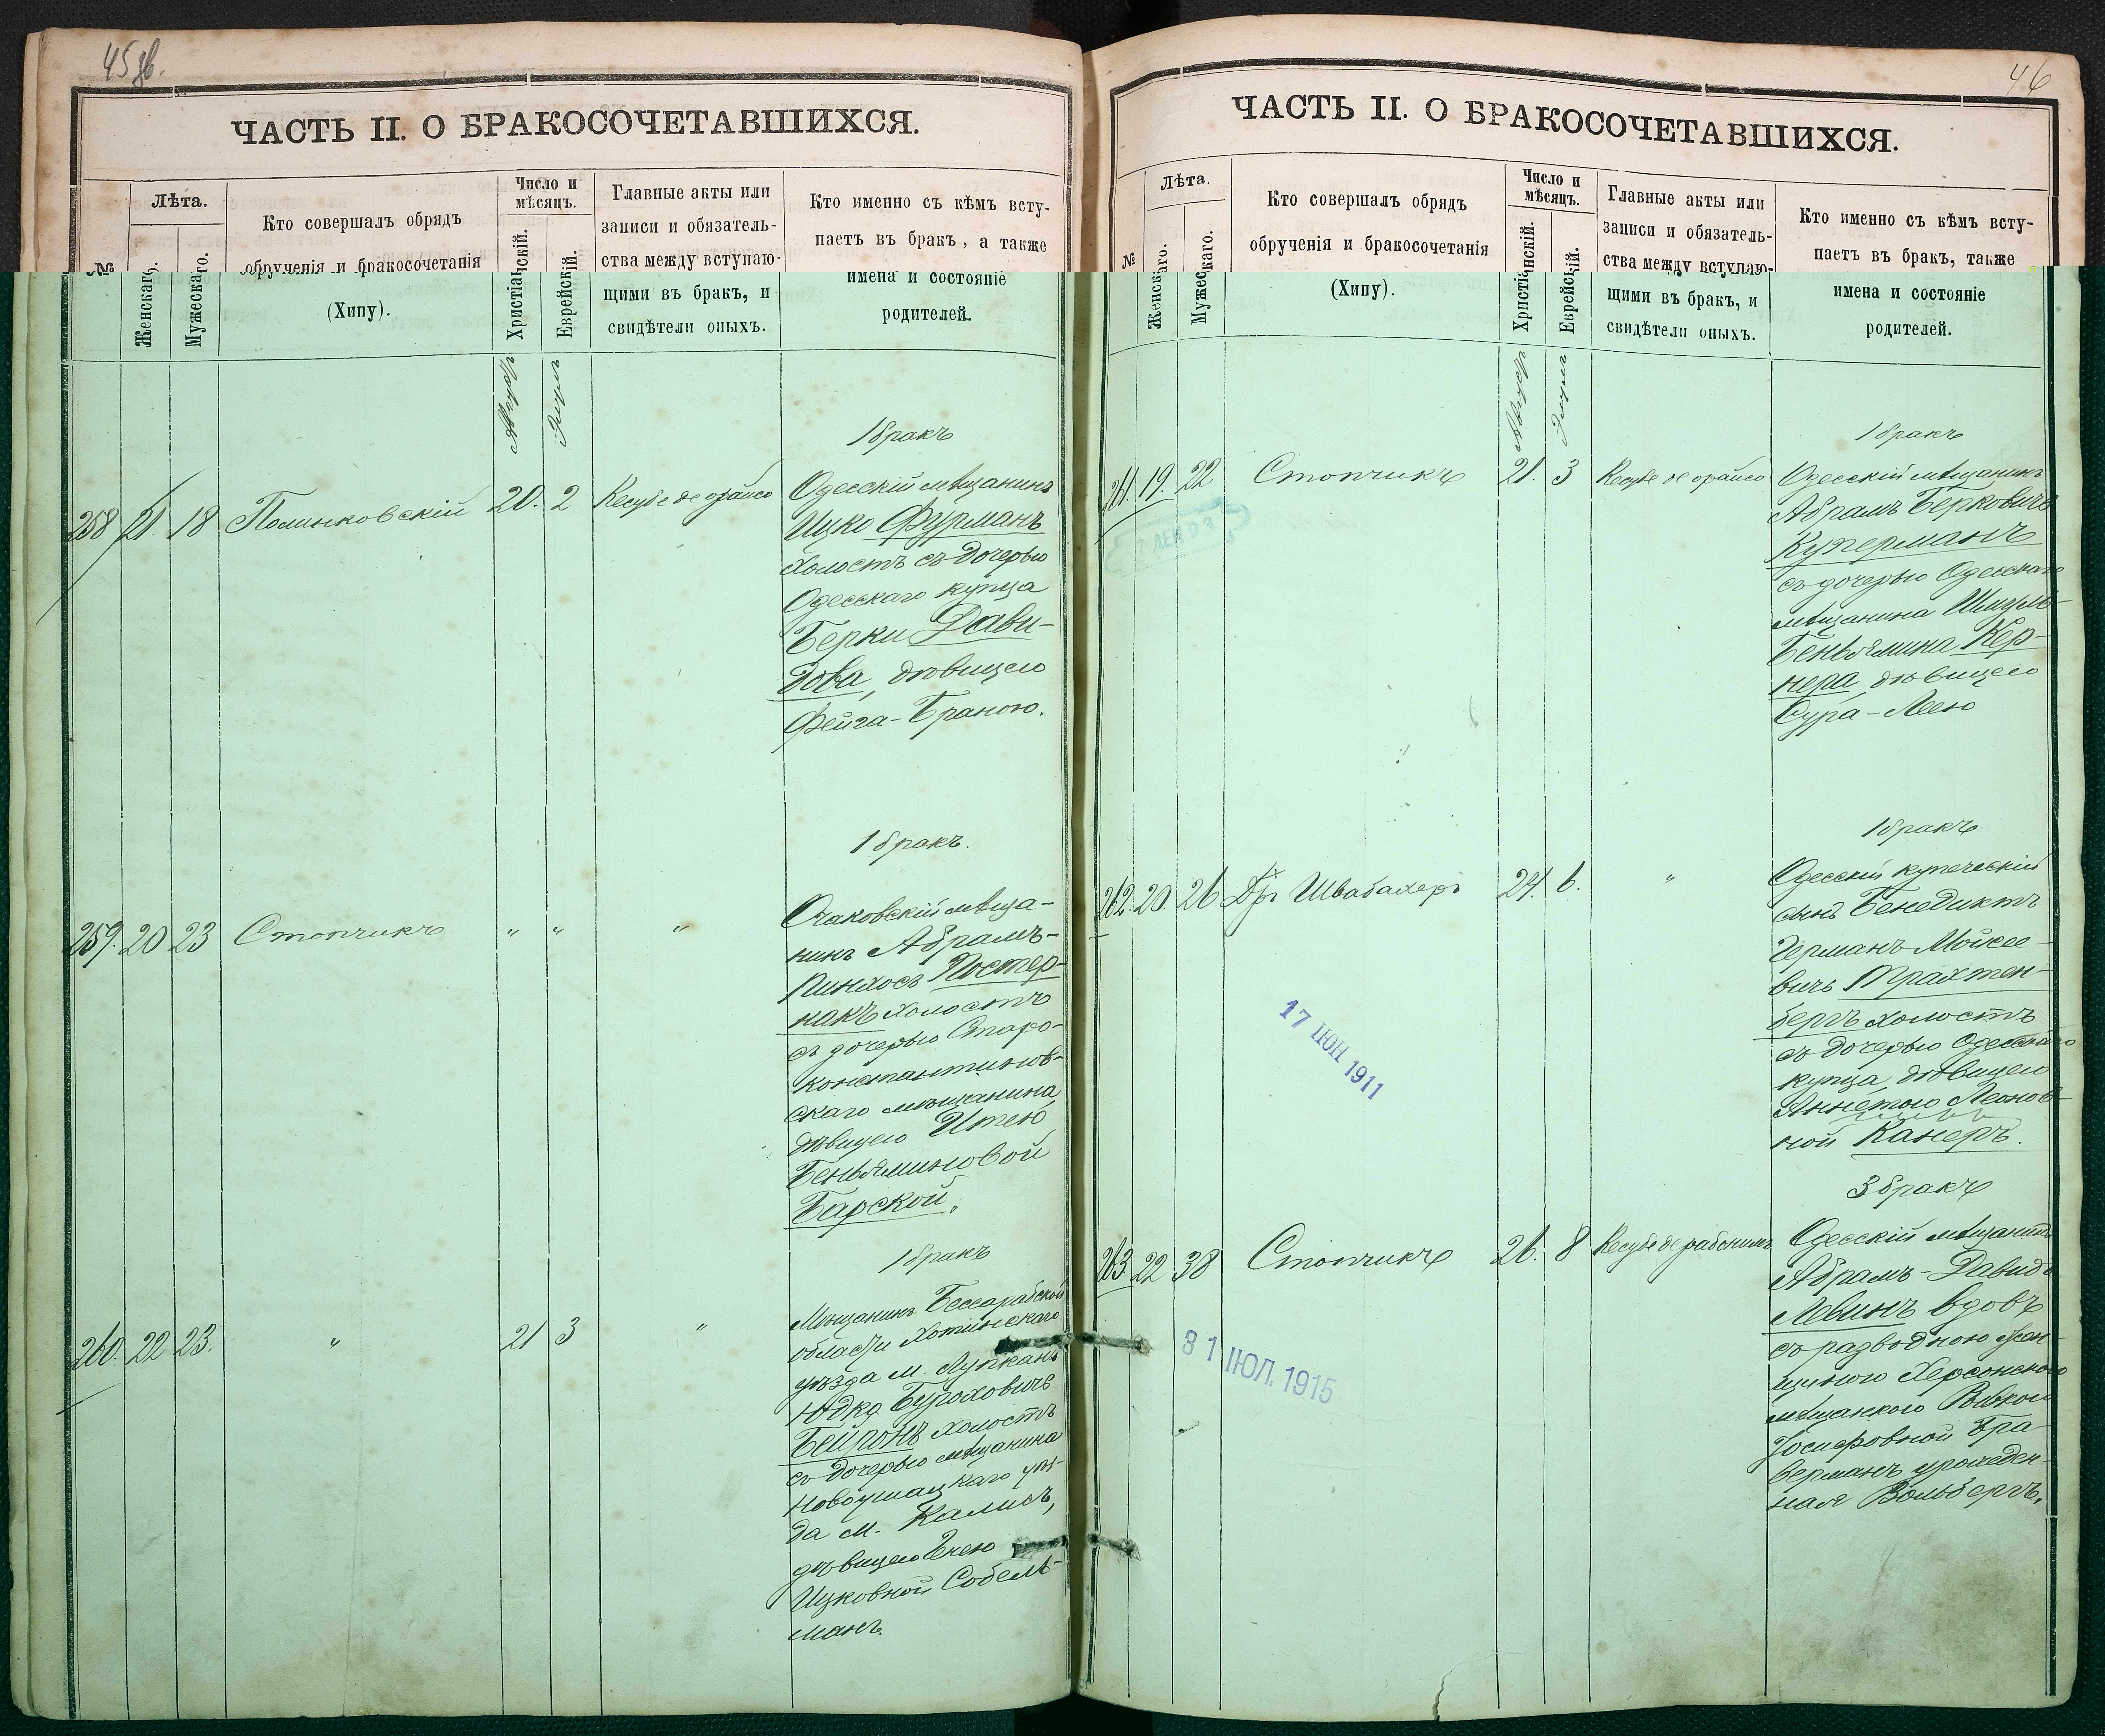 45 об.
ЧАСТЬ II. О БРАКОСОЧЕТАВШИХСЯ.
№
Лѣта.
Женскаго.
Мужескаго.
Кто совершалъ обрядъ
обрученія и бракосочетанія
(Хипу).
Число и
мѣсяцъ.
Христіанскій.
Еврейскій.
Главные акты или
записи и обязатель-
ства между вступаю-
щими въ бракъ, и
свидѣтели оныхъ.
Кто именно съ кѣмъ всту-
паетъ въ бракъ, а также
имена и состояніе
родителей.
Августъ
Элулъ
1 бракъ
258 21. 18 Полинковскій 20. 2 Кесубе де орайсо
Одесскій мѣщанинъ
Ицко Фурманъ
холостъ съ дочерью
Одесскаго купца
Берки Дави-
дова, дѣвицею
Фейга-Браною.
1 бракъ.
259. 20 23 Стопчикъ " " "
Очаковскій мѣща-
нинъ Абрамъ-
Пинхосъ Постер-
накъ холостъ
съ дочерью Старо-
константинов-
скаго мѣщанина,
дѣвицею Итею
Беньяминовой
Барской.
1 бракъ
260. 22 23. " 21 3 "
Мѣщанинъ Бессарабской
области Хотинскаго
уѣзда м. Лупканъ
Юдко Буроховичъ
Бейронъ холостъ
съ дочерью мѣщанина
Новоушицкаго уѣз-
да м. Калюсъ,
дѣвицею Енею
Ицковной Собель-
манъ.
46
ЧАСТЬ II. О БРАКОСОЧЕТАВШИХСЯ.
№
Лѣта.
Женскаго.
Мужескаго.
Кто совершалъ обрядъ
обрученія и бракосочетанія
(Хипу).
Число и
мѣсяцъ.
Христіанскій.
Еврейскій.
Главные акты или
записи и обязатель-
ства между вступаю-
щими въ бракъ, и
свидѣтели оныхъ.
Кто именно съ кѣмъ всту-
паетъ въ бракъ, также
имена и состояніе
родителей.
Августъ
Элулъ
1 бракъ
261. 19. 22 Стопчикъ 21. 3 Кесубе де орайсо
Одесскій мѣщанинъ
Абрамъ Берковичъ
Куперманъ
съ дочерью Одесскаго
мѣщанина Шмуль-
Беньямина Кер-
нера, дѣвицею
Сура-Леею
1 бракъ
262. 20. 26 Др. Швабахеръ 24. 6. "
Одесскій купеческій
сынъ Бенедиктъ
Германъ Мойсее-
вичъ Трахтен-
бергъ холостъ
съ дочерью Одесскаго
купца, дѣвицею
Аннетою Леонов-
ной Канеръ.
17 ІЮН 1911
3 бракъ
263. 22 38 Стопчикъ 26. 8 Кесубе де рабонимъ
Одесскій мѣщанинъ
Абрамъ-Давидъ
Левинъ вдовъ
съ разводною жен-
щиною Херсонскою
мѣщанкою Ривкою
Іосифовной Бра-
верманъ урожден-
ная Вольбергъ.
31 ІЮЛ. 1915